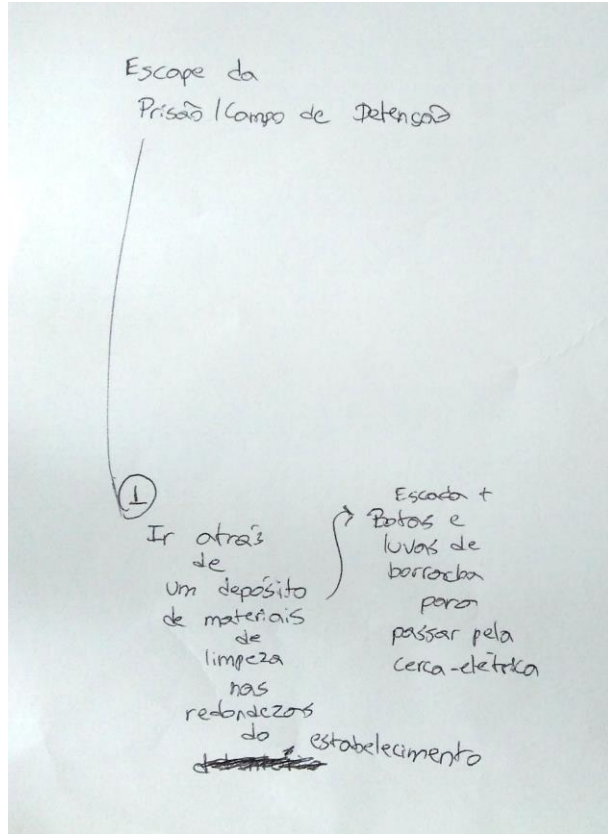 Escape da
Prisão/Campo de Detenção
1
Ir atrás
de
um depósito
de materiais
de
limpeza
nas
redondezas
do
estabelecimento
Escada +
Botas e
luvas de
borracha
para
passar pela
cerca-elétrica